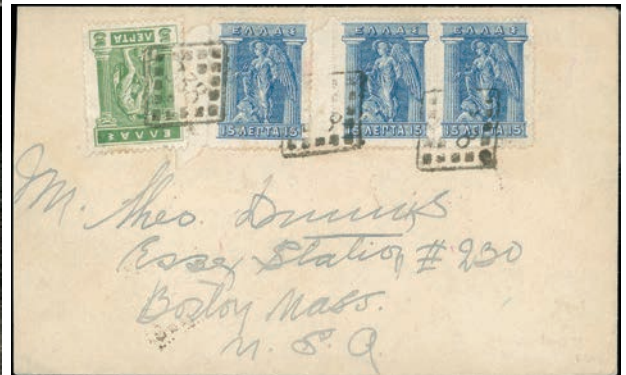 ΕΛΛΑΣ
5 ΛΕΠΤΑ 5
ΕΛΛΑΣ
15 ΛΕΠΤΑ 15
ΕΛΛΑΣ
15 ΛΕΠΤΑ 15
ΕΛΛΑΣ
15 ΛΕΠΤΑ 15
M. Theo.
Essex Station # 230
Boston Mass.
U. S. A.